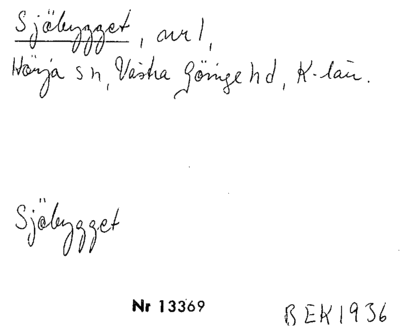 Sjöbygget, avs.,
Hörja sn, Västra Göinge hd, K-län.
Sjöbygget
Nr 13369
BEK 1936